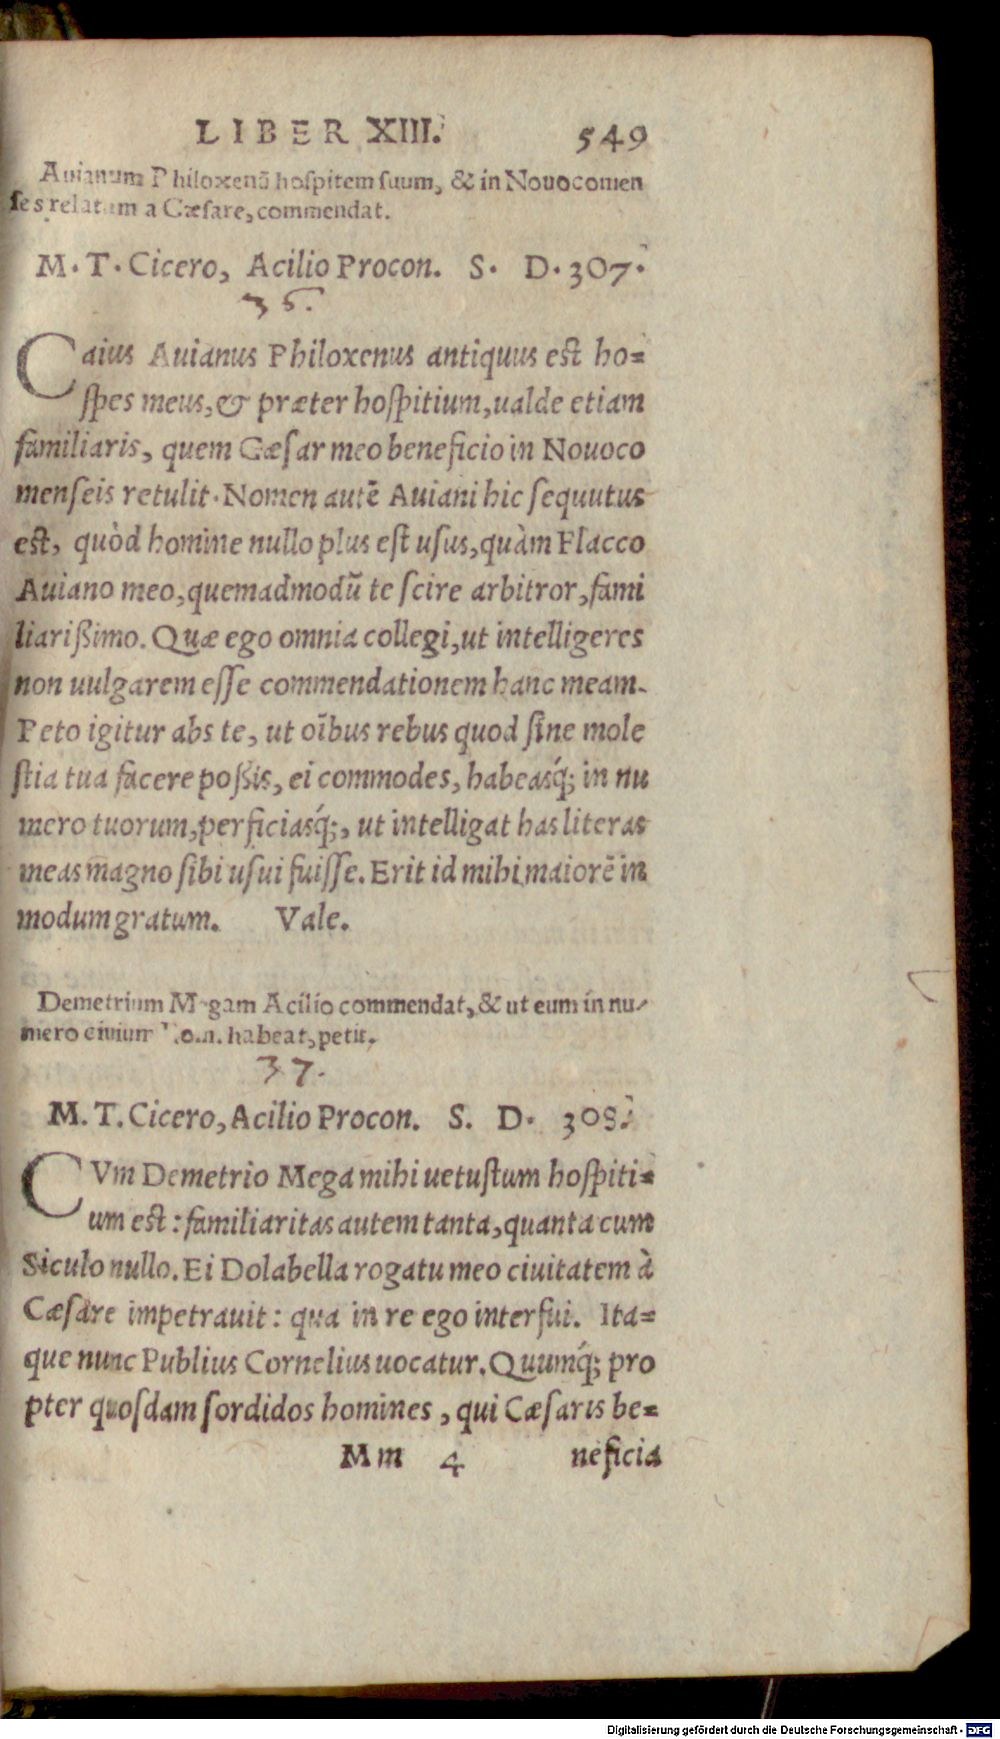 LIBER XIII. 549
Auianum Philoxenũ hospitem suum, & in Nouocomen
ses relatum a Cæsare, commendat.
M. T. Cicero, Acilio Procon. S. D. 307.
35.
Caius Auianus Philoxenus antiquus est ho=
spes meus, & præter hospitium, ualde etiam
familiaris, quem Cæsar meo beneficio in Nouoco
menseis retulit. Nomen autẽ Auiani hic sequutus
est, quòd homine nullo plus est usus, quàm Flacco
Auiano meo, quemadmodũ te scire arbitror, fami
liarißimo. Quæ ego omnia collegi, ut intelligeres
non uulgarem esse commendationem hanc meam.
Peto igitur abs te, ut oĩbus rebus quod sine mole
stia tua facere poßis, ei commodes, habeasq́; in nu
mero tuorum, perficiasq́;, ut intelligat has literas
meas magno sibi usui fuisse. Erit id mihi maiorẽ in
modum gratum. Vale.
Demetrium Megam Acilio commendat, & ut eum in nu-
mero ciuium Rom. habeat, petit.
37.
M. T. Cicero, Acilio Procon. S. D. 308.
CVm Demetrio Mega mihi uetustum hospiti=
um est: familiaritas autem tanta, quanta cum
Siculo nullo. Ei Dolabella rogatu meo ciuitatem à
Cæsare impetrauit: qua in re ego interfui. Ita=
que nunc Publius Cornelius uocatur. Quumq́; pro
pter quosdam sordidos homines, qui Cæsaris be=
Mm 4 neficia
Digitalisierung gefördert durch die Deutsche Forschungsgemeinschaft - DFG